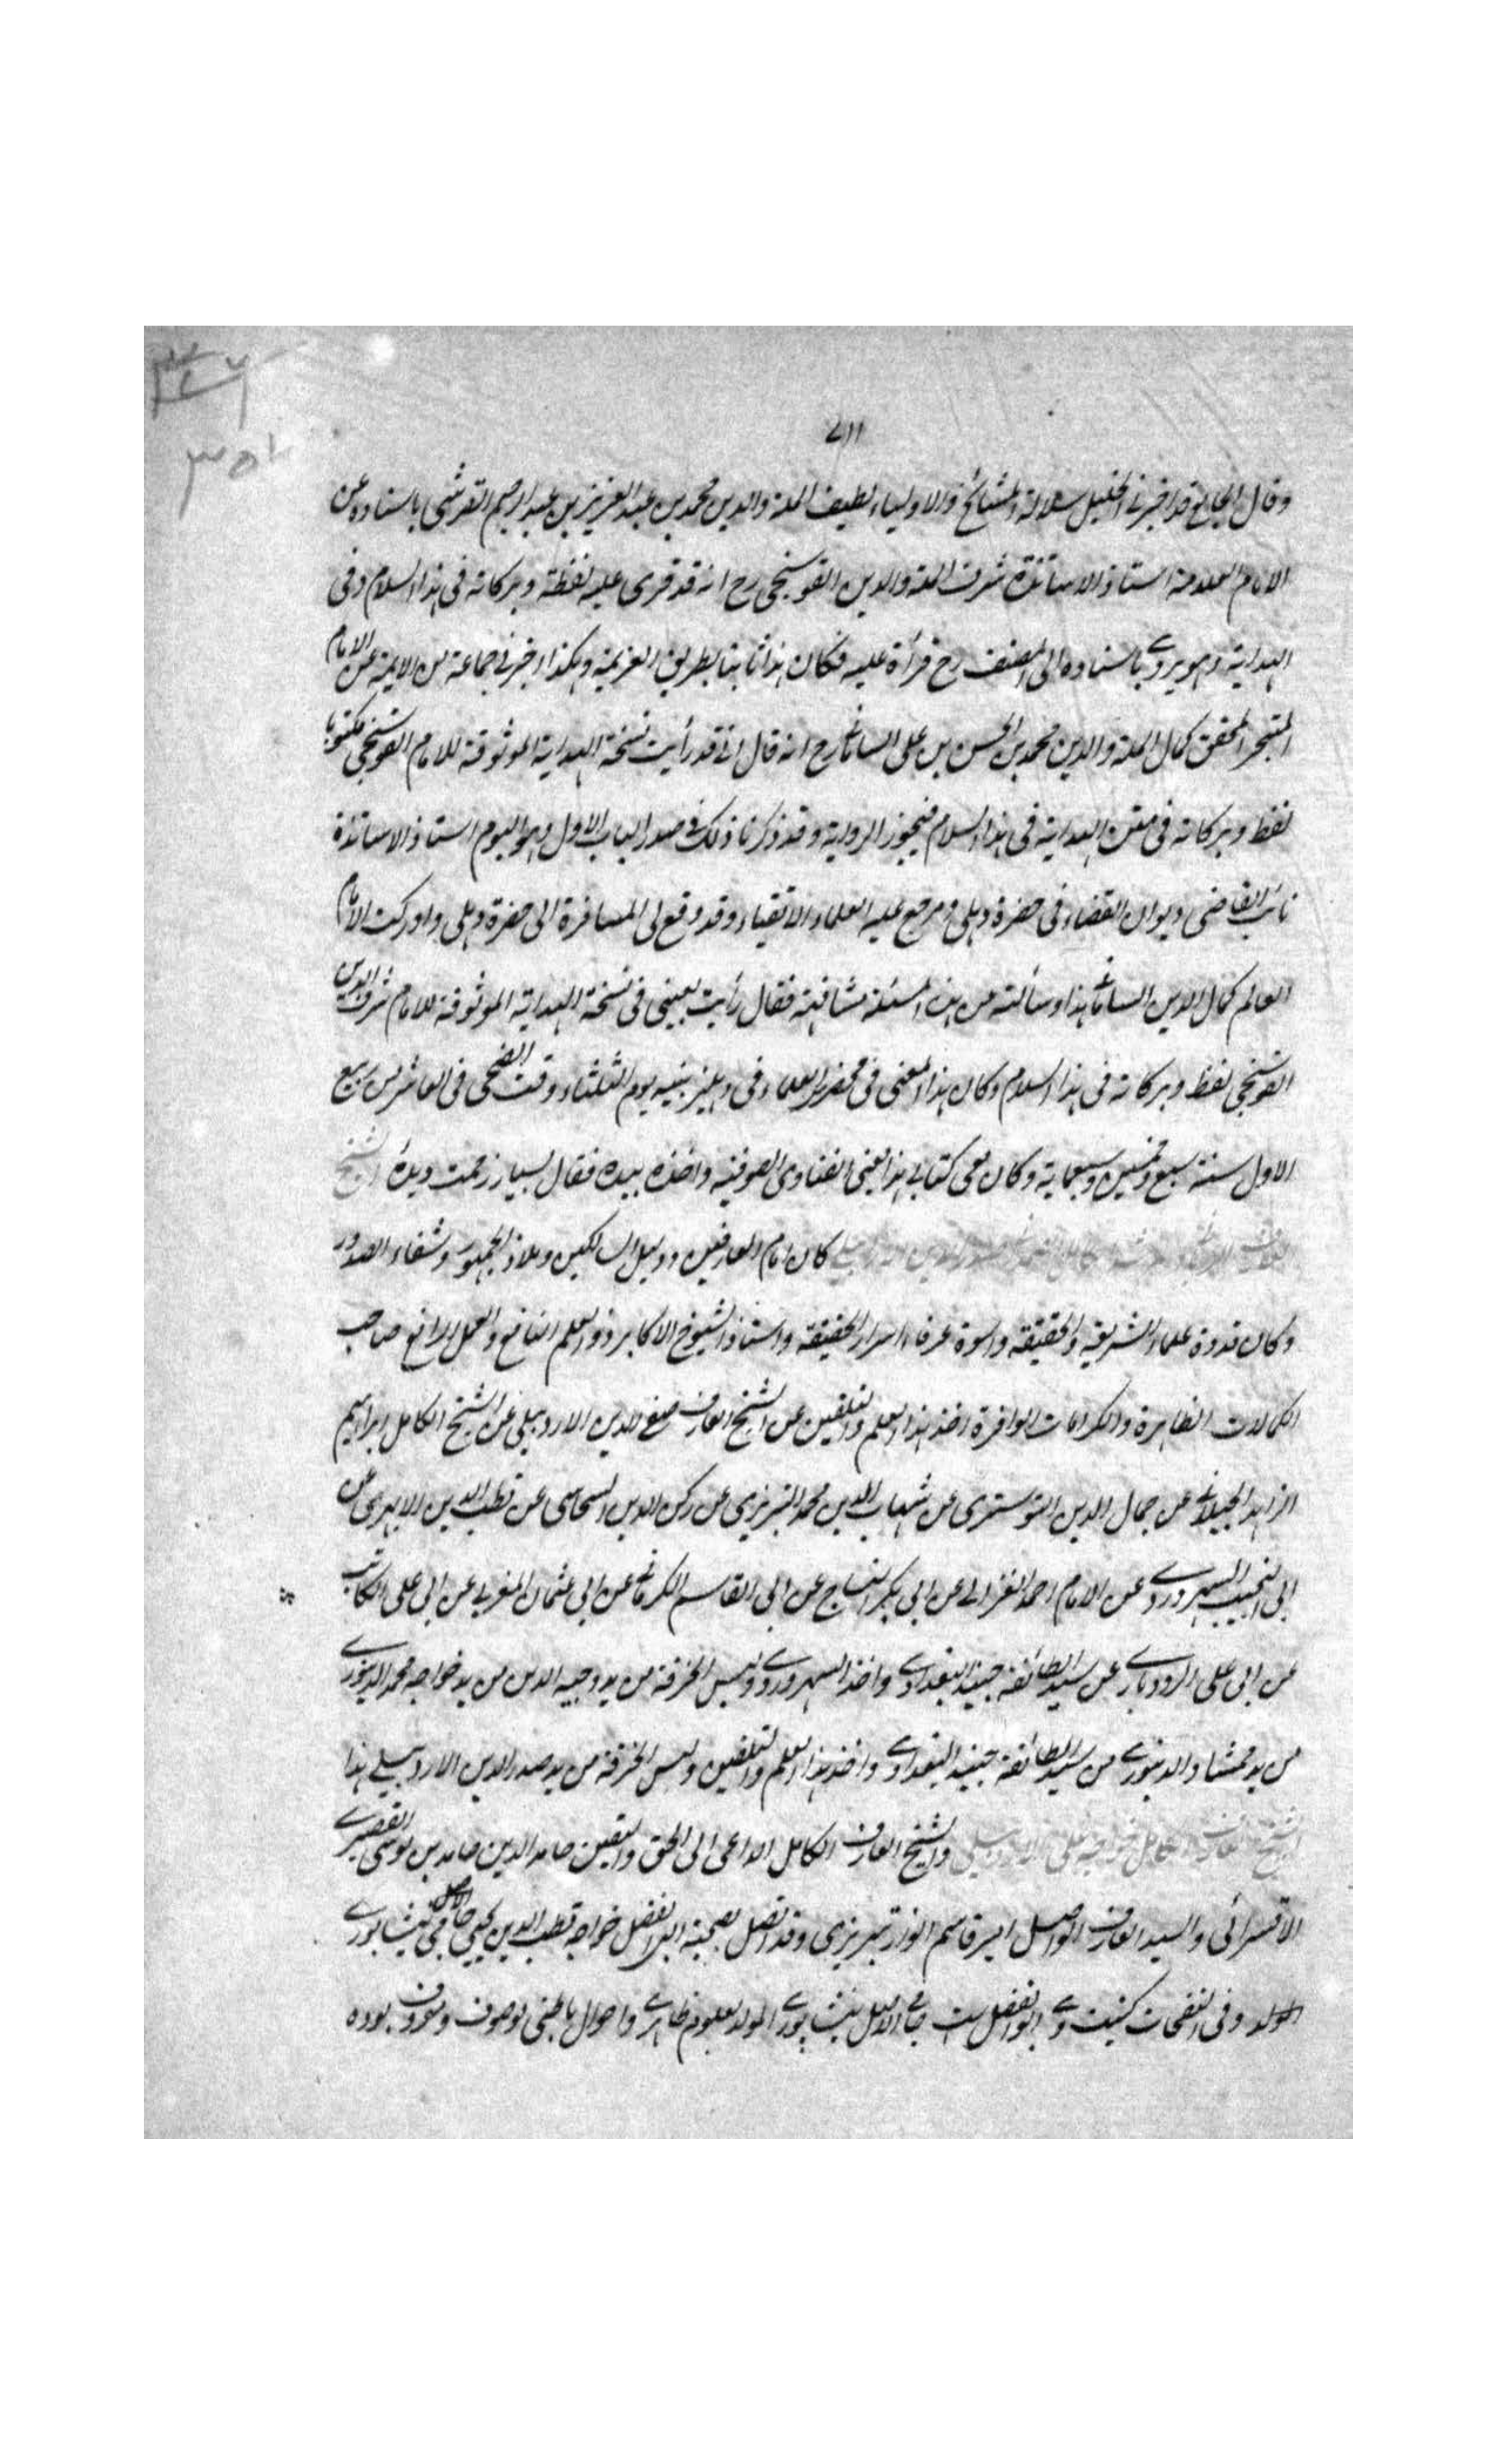 ٧١١
وقال الجامع قد اخبرنى الخليل سلالة المشائخ والاولياء لطيف الملة والدين محمد بن عبد العزيز بن عبد الرحيم القرشى باسناده عن
الامام العلامة استاذ الاساتذة شرف الملة والدين القوسنجى رح انه قد قرى عليه لفظة وبركاته فى هذا السلام وفى
الهداية وهو يروى باسناده الى المصنف رح قرأة عليه فكان هذا ثابتا بطريق العزيمة وهكذا اخبرنى جماعة من الايمة عن الامام
المتبحر المحقق كمال الملة والدين محمد بن الحسن بن على السامانى رح انه قال انى قد رأيت نسخة الهداية الموثوقة للامام القوسنجى مكتوبا
لفظ وبركاته فى متن الهداية فى هذا السلام فيجوز الرواية وقد ذكرنا ذلك فى صدر الباب الاول وهو اليوم استاذ الاساتذة
نائب القاضى ديوان القضاء فى حضرة دهلى ومرجع عليه العلماء الاتقياء وقد وقع لى المسافرة الى حضرة دهلى وادركت الامام
العالم كمال الدين السامانى هذا وسألته من هذه المسئلة مشافهة فقال رأيت بعينى فى نسخة الهداية الموثوقة للامام شرف الدين
القوسنجى لفظ وبركاته فى هذا السلام وكان هذا المعنى فى محضر العلماء فى دهليز بيته يوم الثلثاء وقت الضحى فى العاشر من ربيع
الاول سنة سبع وخمسين وسبعماية وكان معى كتابى هذا يعنى الفتاوى الصوفية واخذه بيده فقال بسيار زحمت ديدۀ الشيخ
كان امام العارفين ودليل السالكين وملاذ الجمهور وشفاء الصدور
وكان قدوة علماء الشريعة والحقيقة واسوة عرفاء اسرار الحقيقة واستاذ الشيوخ الاكابر ذو العلم النافع والعمل الرافع صاحب
الكمالات الظاهرة والكرامات الوافرة اخذ هذا العلم والتلقين عن الشيخ العارف صفى الدين الاردبيلى عن الشيخ الكامل ابراهيم
الزاهد الجيلانى عن جمال الدين التوسترى عن شهاب الدين محمد التبريزى عن ركن الدين السحاسى عن قطب الدين الابهرى عن
ابى النجيب السهروردى عن الامام احمد الغزالى عن ابى بكر النساج عن ابى القاسم الكرمانى عن ابى عثمان المغربى عن ابى على الكاتب
عن ابى على الرودبارى عن سيد الطائفة جنيد البغدادى واخذ السهروردى ولبس الخرقة من يد وجيه الدين من يد خواجه محمد الدينورى
من يد ممشاد الدينورى من سيد الطائفة جنيد البغدادى واخذ هذا العلم والتلقين ولبس الخرقة من يد صدر الدين الاردبيلى هذا
الشيخ العارف الكامل خواجه على الاردبيلى والشيخ العارف الكامل الداعى الى الحق واليقين حامد الدين حامد بن موسى القيصرى
الاقسرائى والسيد العارف الواصل امير قاسم انوار تبريزى وقد اتصل بصحبته ابو الفضل خواجه قطب الدين يحيى جامى الاصل نيشابورى
المولد وفى النفحات كنيت وى ابو الفضل است جامى الاصل نيشابورى المولد بعلوم ظاهرى واحوال باطنى موصوف ومعروف بوده